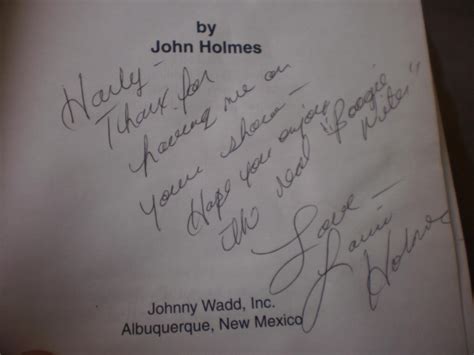 by
John Holmes
Harly -
Thank for
having me on
your show -
Hope you enjoy
the real "Boogie
Nites"
Love -
Laurie
Holmes
Johnny Wadd, Inc.
Albuquerque, New Mexico